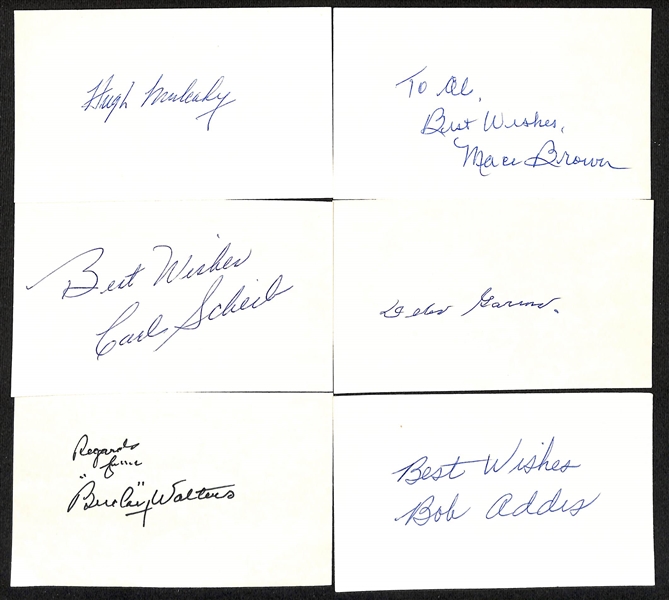 Hugh Mulcahy
To Al,
Best Wishes,
Mace Brown
Best Wishes
Carl Scheib
Regards
from
"Bucky" Walters
Best Wishes
Bob Addis